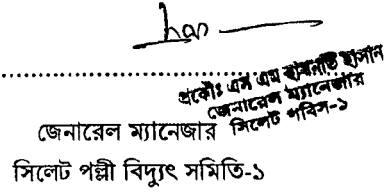 প্রকৌঃ এস এম হাসনাত হাসান
জেনারেল ম্যানেজার
সিলেট পবিস-১
জেনারেল ম্যানেজার
সিলেট পল্লী বিদ্যুৎ সমিতি-১